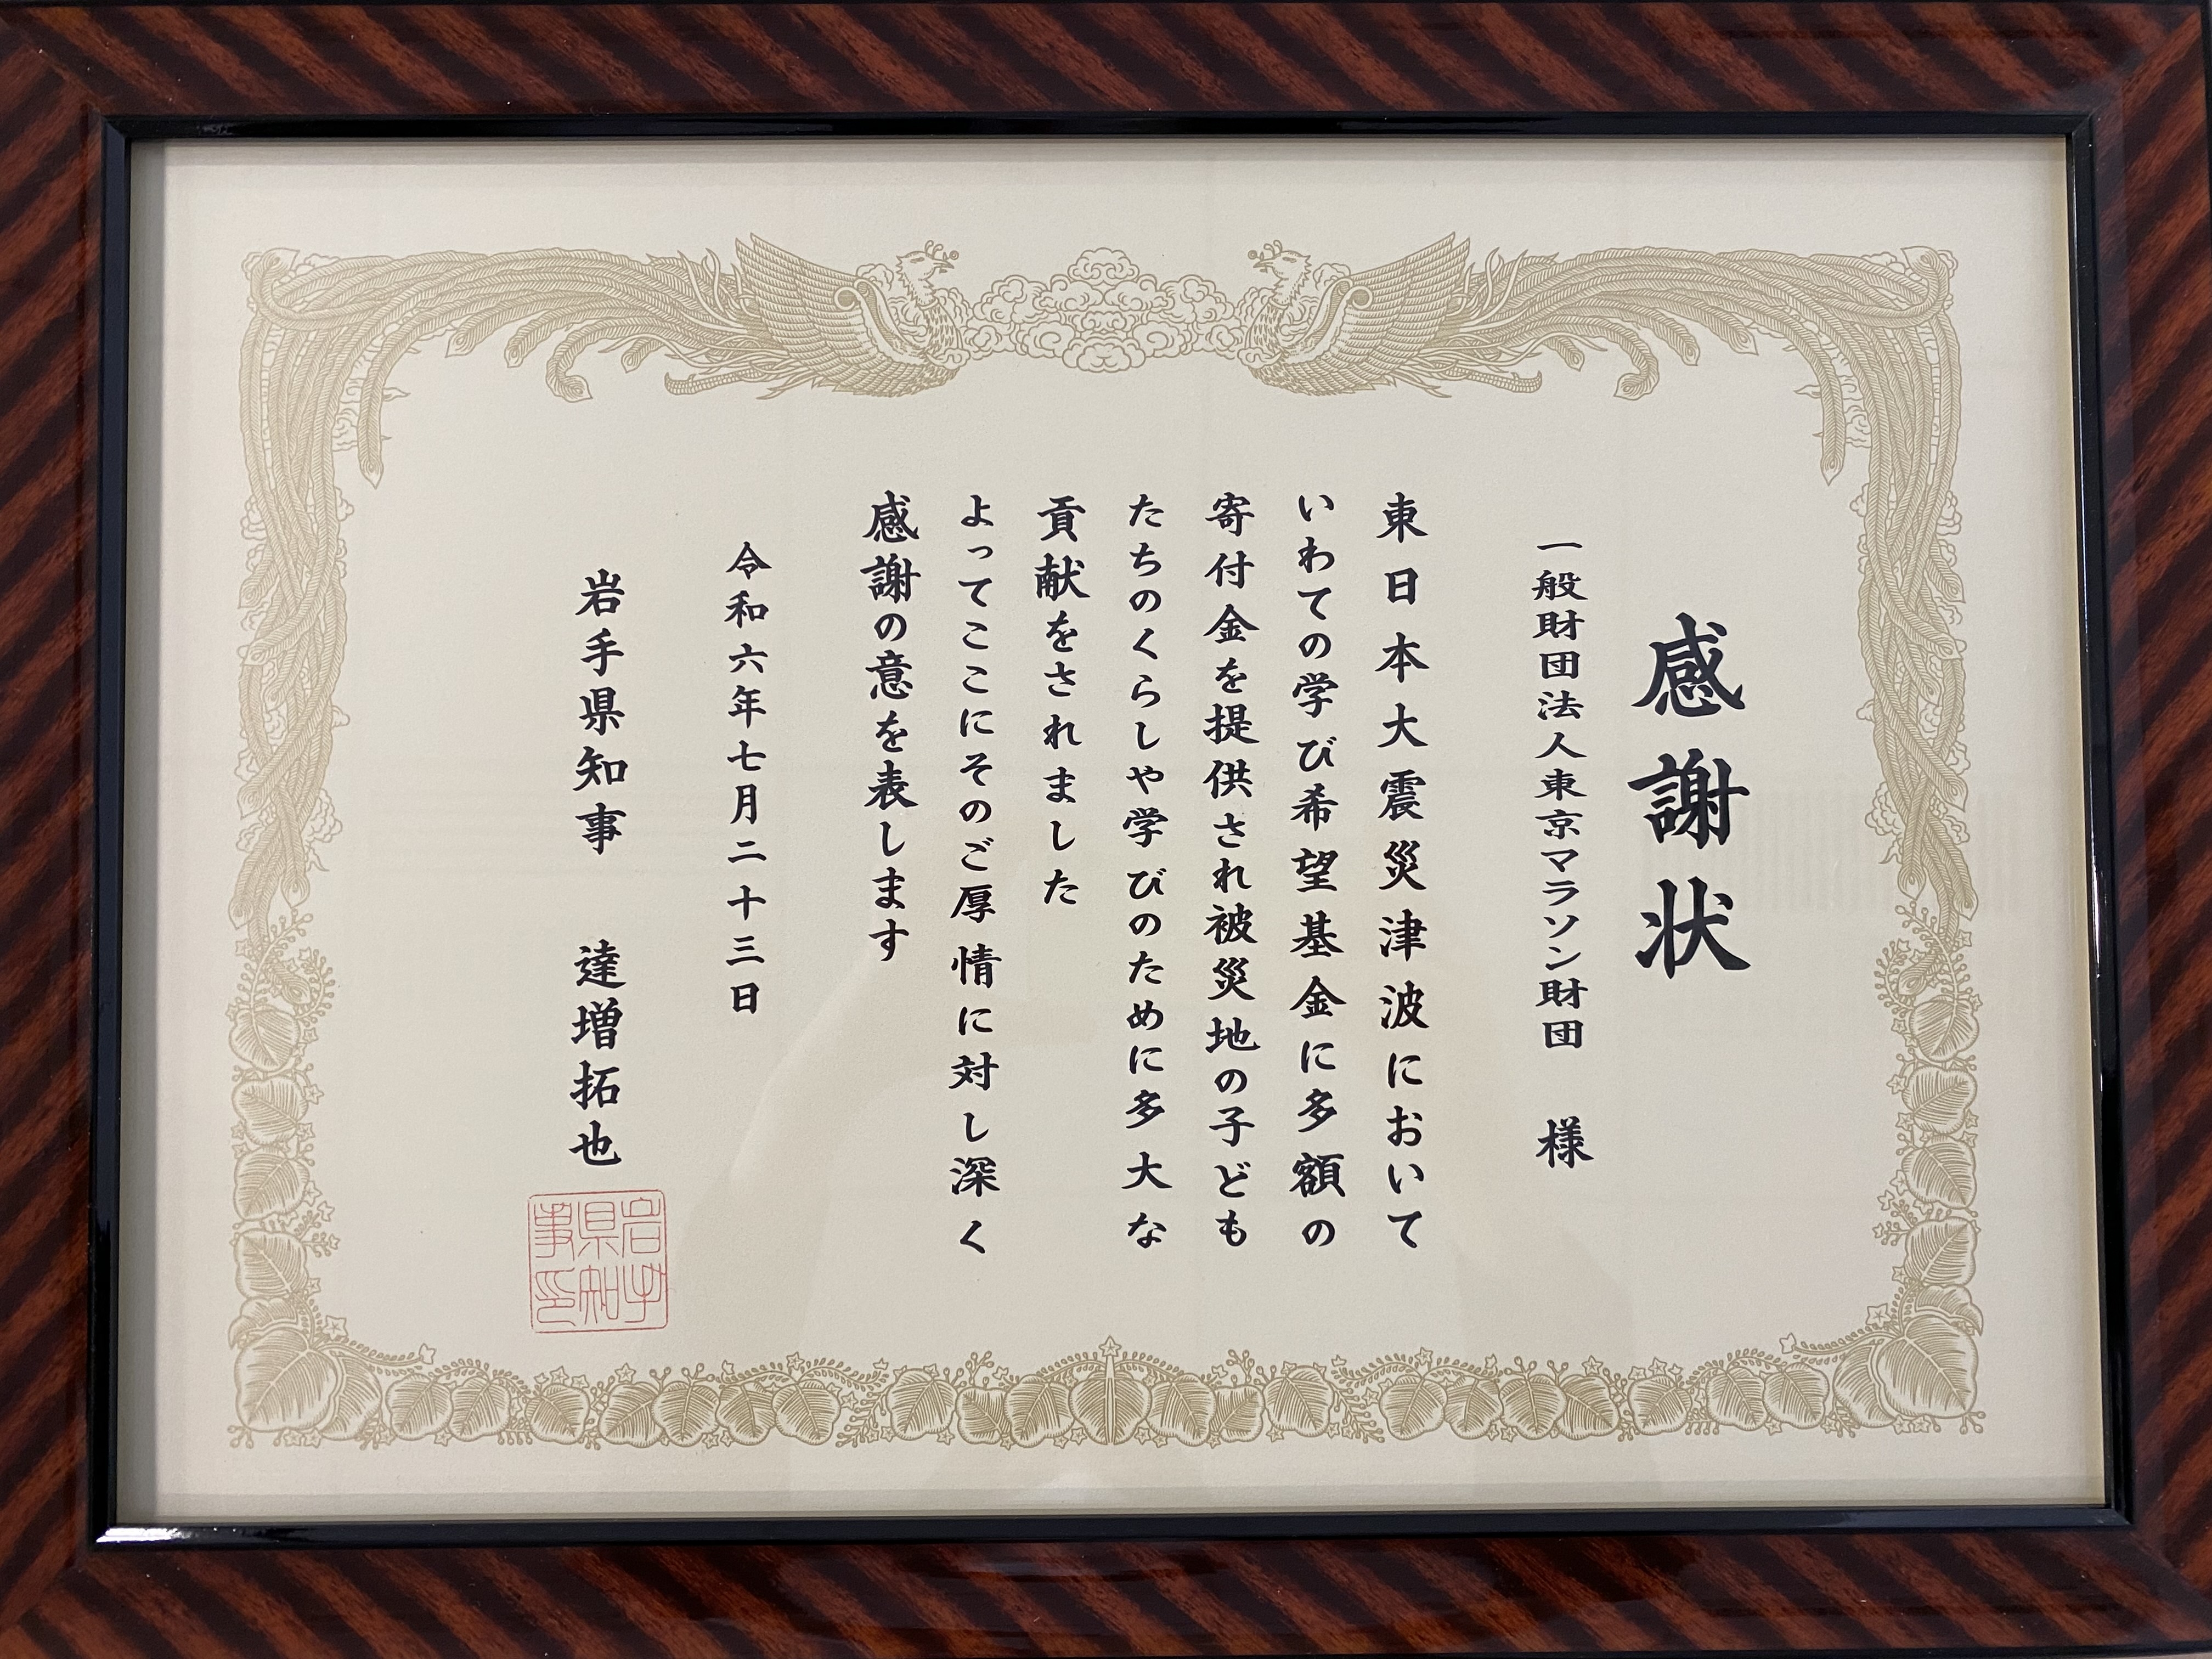 感謝状
一般財団法人東京マラソン財団 様
東日本大震災津波において
いわての学び希望基金に多額の
寄付金を提供され被災地の子ども
たちのくらしや学びのために多大な
貢献をされました
よってここにそのご厚情に対し深く
感謝の意を表します
令和六年七月二十三日
岩手県知事 達増拓也
岩手県知事印